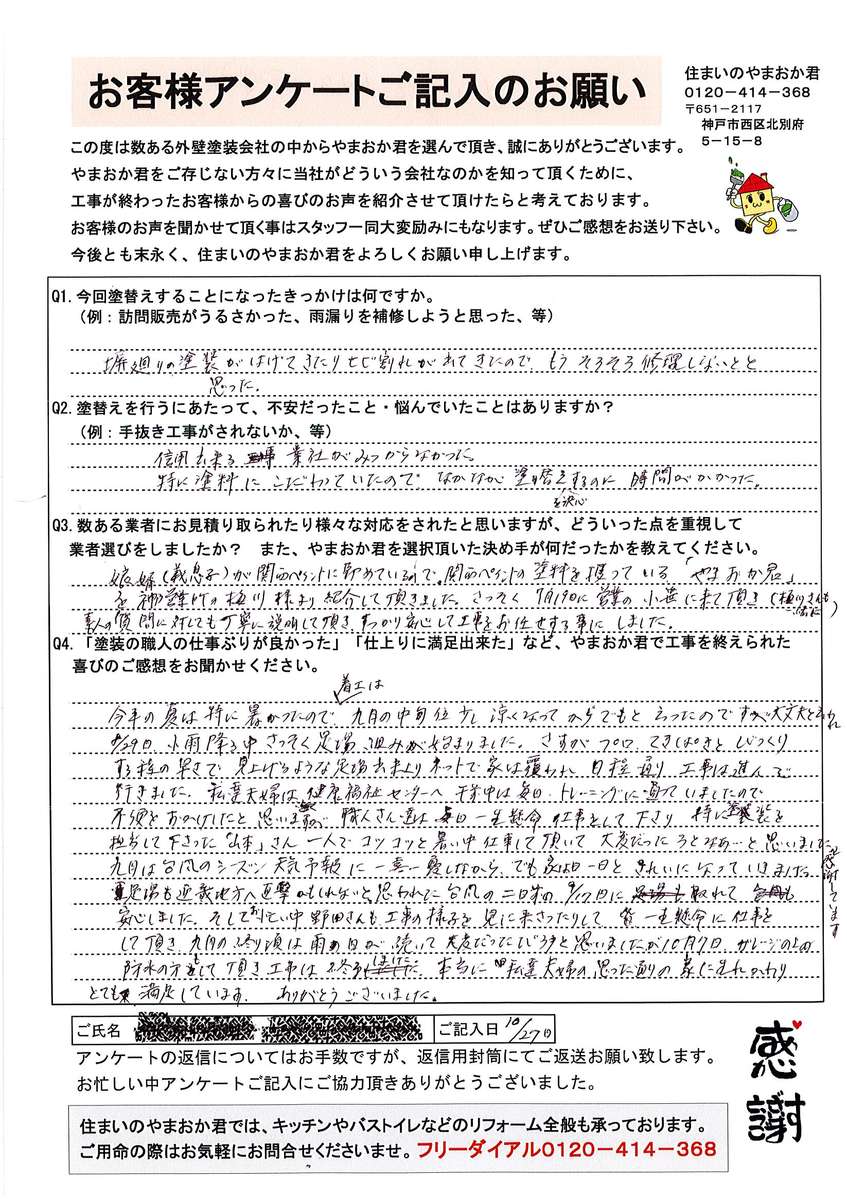 お客様アンケートご記入のお願い
住まいのやまおか君
0120－414－368
〒651－2117
神戸市西区北別府
5－15－8
この度は数ある外壁塗装会社の中からやまおか君を選んで頂き、誠にありがとうございます。
やまおか君をご存じない方々に当社がどういう会社なのかを知って頂くために、
工事が終わったお客様からの喜びのお声を紹介させて頂けたらと考えております。
お客様のお声を聞かせて頂く事はスタッフ一同大変励みにもなります。ぜひご感想をお送り下さい。
今後とも末永く、住まいのやまおか君をよろしくお願い申し上げます。
Q1. 今回塗替えすることになったきっかけは何ですか。
（例：訪問販売がうるさかった、雨漏りを補修しようと思った、等）
塀廻りの塗装がはげてきたりヒビ割れがあてきたので、もうそろそろ修理しないとと
思った。
Q2. 塗替えを行うにあたって、不安だったこと・悩んでいたことはありますか？
（例：手抜き工事がされないか、等）
信用出来る 業社がみつからなかった。
特に塗料にこだわっていたので なかなか 塗り替えするのに 時間がかかった。
を決心
Q3. 数ある業者にお見積り取られたり様々な対応をされたと思いますが、どういった点を重視して
業者選びをしましたか？ また、やまおか君を選択頂いた決め手が何だったかを教えてください。
娘婿(義息子)が関西ペイントに勤めているので、関西ペイントの塗料を扱っている「やまおか君」
を 様より紹介して頂きました。さっそく9月19日に営業の小笹に来て頂き
素人の質問に対しても丁寧に説明して頂き すっかり安心して工事をお任せする事にしました。
Q4. 「塗装の職人の仕事ぶりが良かった」「仕上りに満足出来た」など、やまおか君で工事を終えられた
喜びのご感想をお聞かせください。
着工は
今年の夏は特に暑かったので 九月の中旬位少し涼しくなってからでもと 思ったのですが大丈夫と
8/29日、小雨降る中さっそく足場組みが始まりました。さすがプロ、てきぱきとびっくり
する程の早さで 見上げるような足場出来上りネットで家は覆われ 日程通り 工事は進んで
行きました。私達夫婦は健康福祉センターへ 午前中は毎日、トレーニングに通っていましたので
不便をおかけしたと思います 職人さん達は毎日一生懸命仕事をして下さり 特に塗装を
担当して下さった「山本」さん一人でコツコツと暑い中仕事して頂いて 大変だったろうなあ…と思いました
九月は台風のシーズン 天気予報に一喜一憂しながら、でも家は日一日ときれいになっていきました
感謝してます
足場も近畿地方へ直撃かもしれないと思われた台風の二日前の9/17日に 取れて
安心しました。そしてお忙しい中野田さんも工事の様子を見に来て下さったりして 皆一生懸命に仕事を
して頂き、九月の終り頃は雨の日が続いて大変だったと思いましたが10月7日、ガレージの上の
防水の方もして頂き工事は終了しました。本当に私達夫婦の思った通りの家に生れかわり
とても満足しています。ありがとうございました。
ご氏名
ご記入日 10/27日
アンケートの返信についてはお手数ですが、返信用封筒にてご返送お願い致します。
お忙しい中アンケートご記入にご協力頂きありがとうございました。
感謝
住まいのやまおか君では、キッチンやバストイレなどのリフォーム全般も承っております。
ご用命の際はお気軽にお問合せくださいませ。フリーダイアル0120－414－368